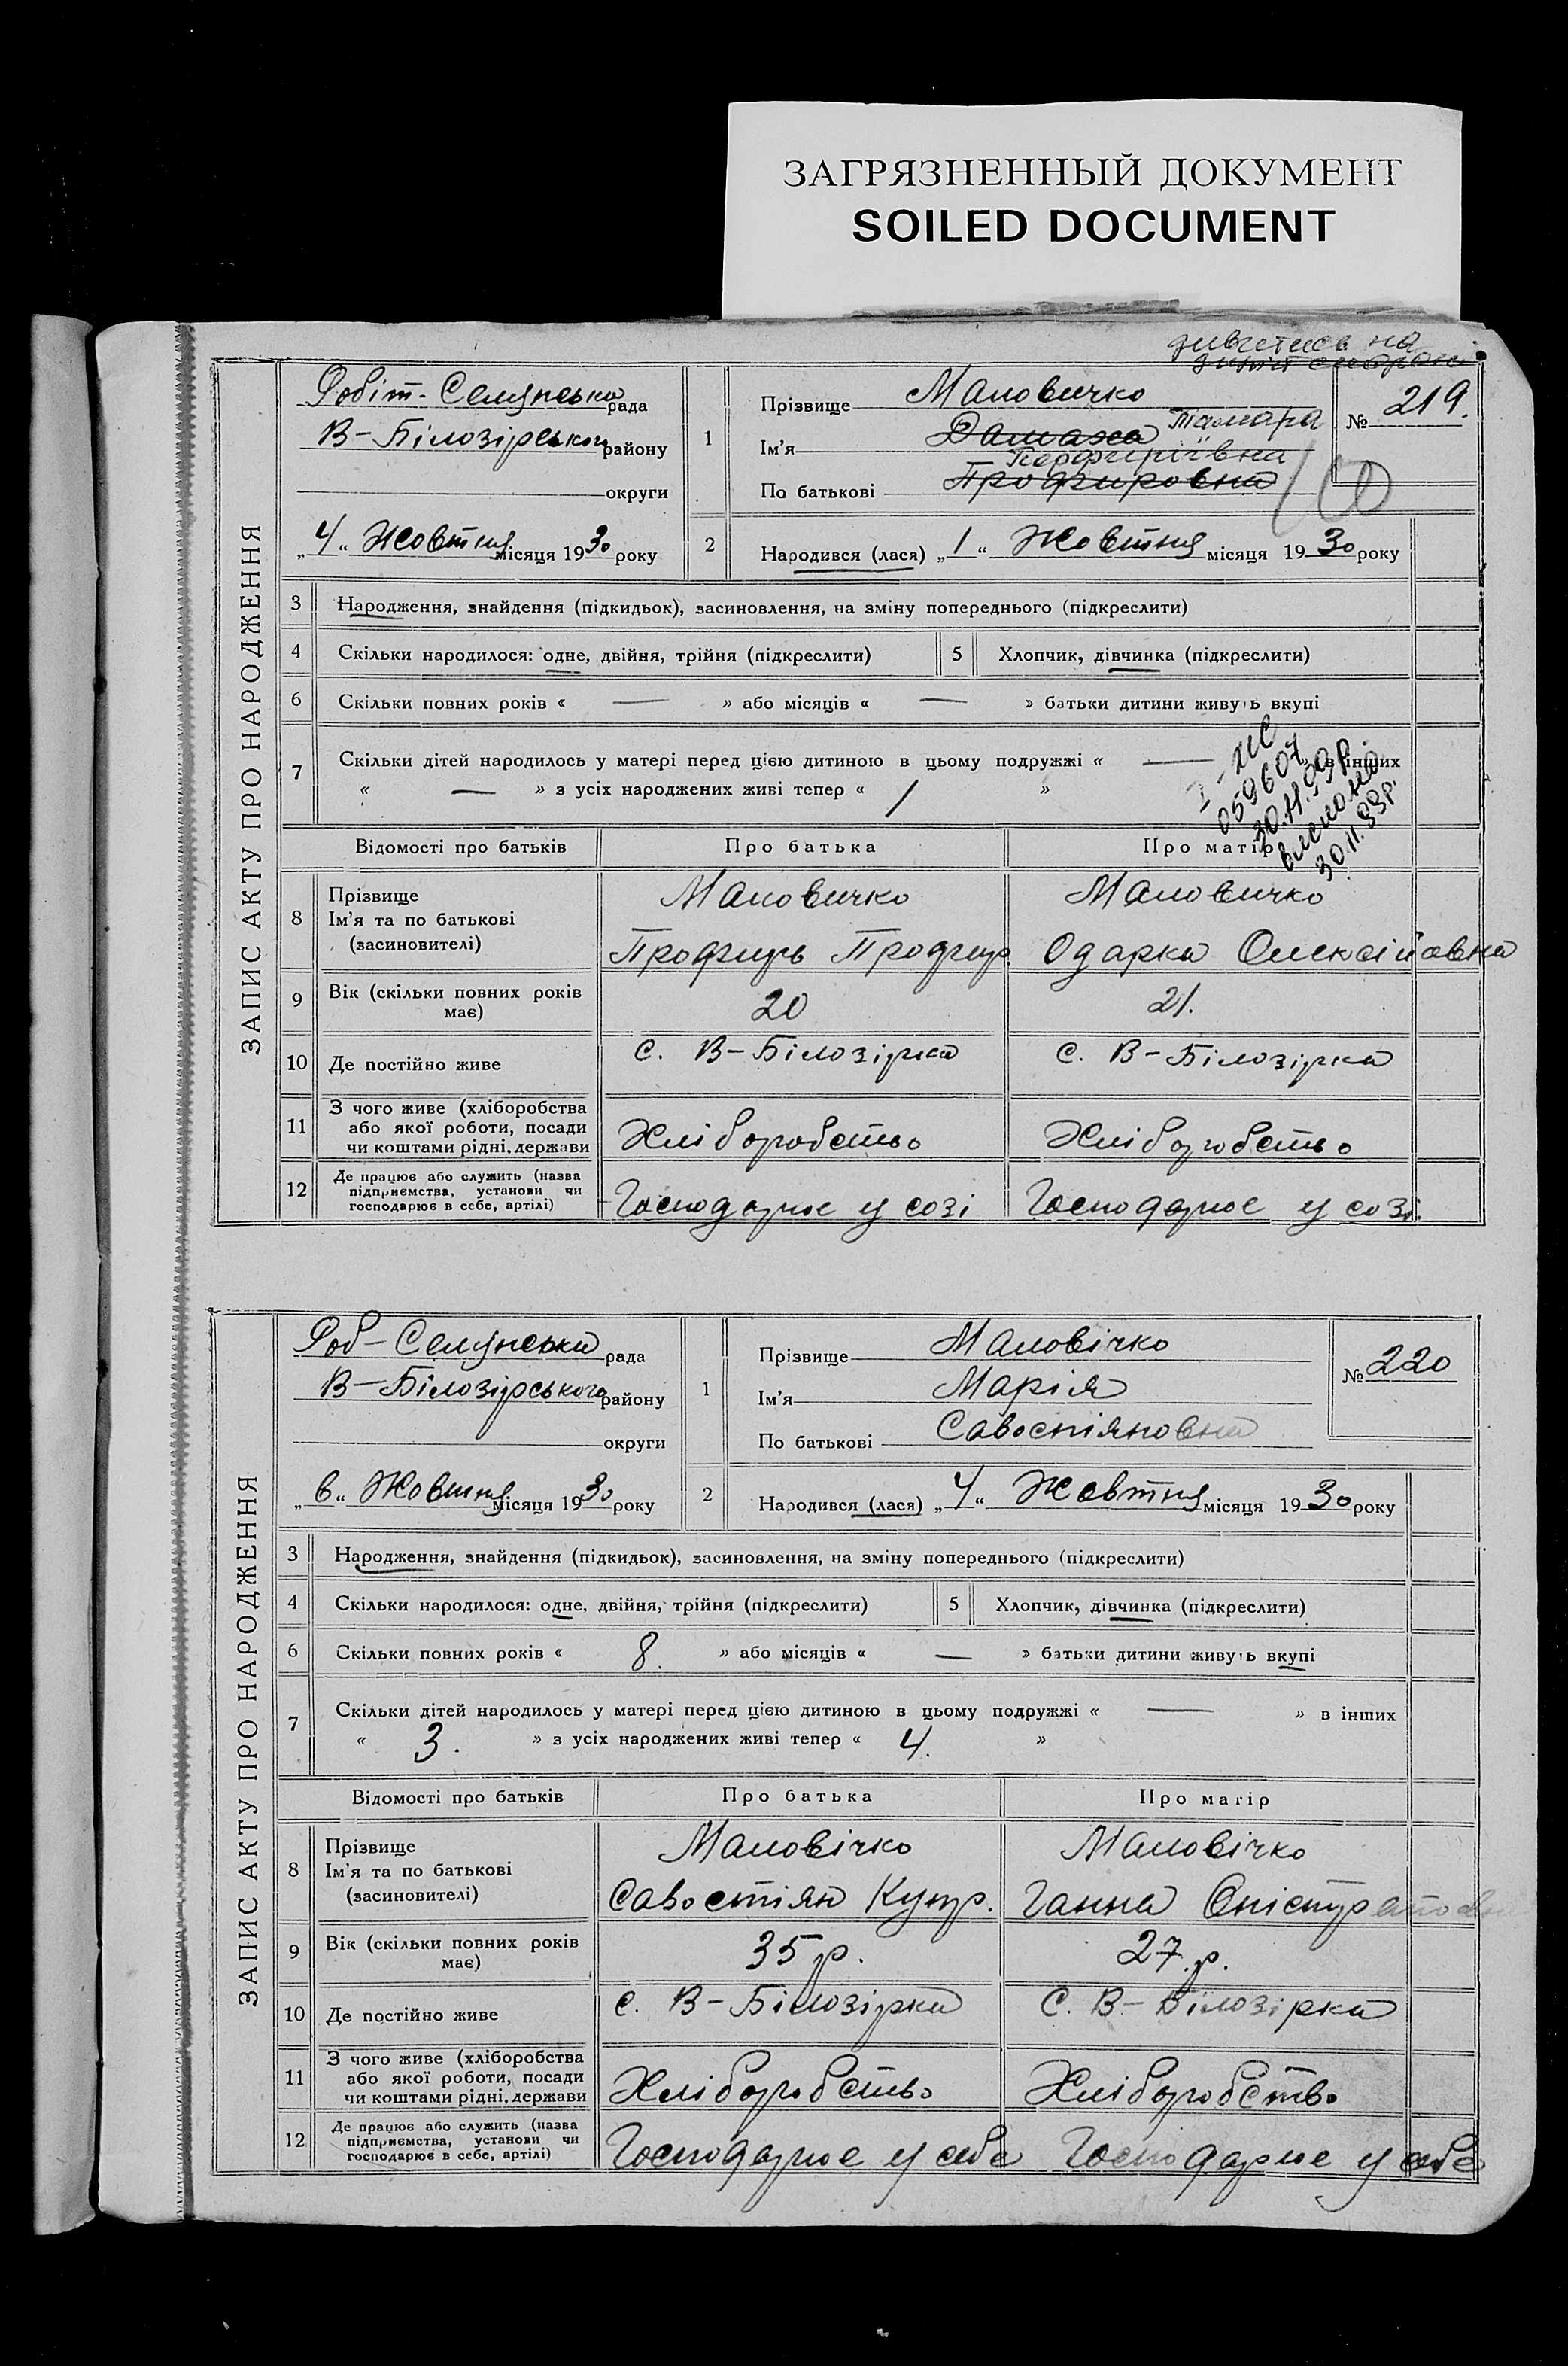 ЗАГРЯЗНЕННЫЙ ДОКУМЕНТ
SOILED DOCUMENT
дивитись на
ЗАПИС АКТУ ПРО НАРОДЖЕННЯ
Робіт-Селянська рада
В-Білозірського району
округи
„4“ Жовтня місяця 1930 року
1
Прізвище Маловичко
Ім'я Тамара
По батькові Порфиріївна
Профировна
№ 219.
2
Народився (лася) „1“ Жовтня місяця 1930 року
3 Народження, знайдення (підкидьок), засиновлення, на зміну попереднього (підкреслити)
4 Скільки народилося: одне, двійня, трійня (підкреслити) 5 Хлопчик, дівчинка (підкреслити)
6 Скільки повних років « — » або місяців « — » батьки дитини живуть вкупі
7 Скільки дітей народилось у матері перед цією дитиною в цьому подружжі « — » в інших
« — » з усіх народжених живі тепер « 1 »
І-ЖС
059607
30.11.99р.
виписано
30.11.99р.
Відомості про батьків Про батька Про матір
8 Прізвище
Ім'я та по батькові
(засиновителі)
Маловичко Маловичко
Профирь Профир Одарка Олексійовна
9 Вік (скільки повних років має) 20 21.
10 Де постійно живе с. В-Білозірка с. В-Білозірка
11 З чого живе (хліборобства
або якої роботи, посади
чи коштами рідні, держави
Хліборобство Хліборобство
12 Де працює або служить (назва
підприємства, установи чи
господарює в себе, артілі)
Господарює у созі Господарює у созі.
ЗАПИС АКТУ ПРО НАРОДЖЕННЯ
Роб-Селянська рада
В-Білозірського району
округи
„6“ Жовтня місяця 1930 року
1
Прізвище Маловічко
Ім'я Марія
По батькові Савостіяновна
№ 220
2
Народився (лася) „4“ Жовтня місяця 1930 року
3 Народження, знайдення (підкидьок), засиновлення, на зміну попереднього (підкреслити)
4 Скільки народилося: одне, двійня, трійня (підкреслити) 5 Хлопчик, дівчинка (підкреслити)
6 Скільки повних років « 8. » або місяців « — » батьки дитини живуть вкупі
7 Скільки дітей народилось у матері перед цією дитиною в цьому подружжі « — » в інших
« 3. » з усіх народжених живі тепер « 4. »
Відомості про батьків Про батька Про матір
8 Прізвище
Ім'я та по батькові
(засиновителі)
Маловічко Маловічко
Савостіян Купр. Ганна Єпістратовна
9 Вік (скільки повних років має) 35 р. 27. р.
10 Де постійно живе с. В-Білозірка С. В-Білозірка
11 З чого живе (хліборобства
або якої роботи, посади
чи коштами рідні, держави
Хліборобство Хліборобство
12 Де працює або служить (назва
підприємства, установи чи
господарює в себе, артілі)
Господарює у себе Господарює у себе